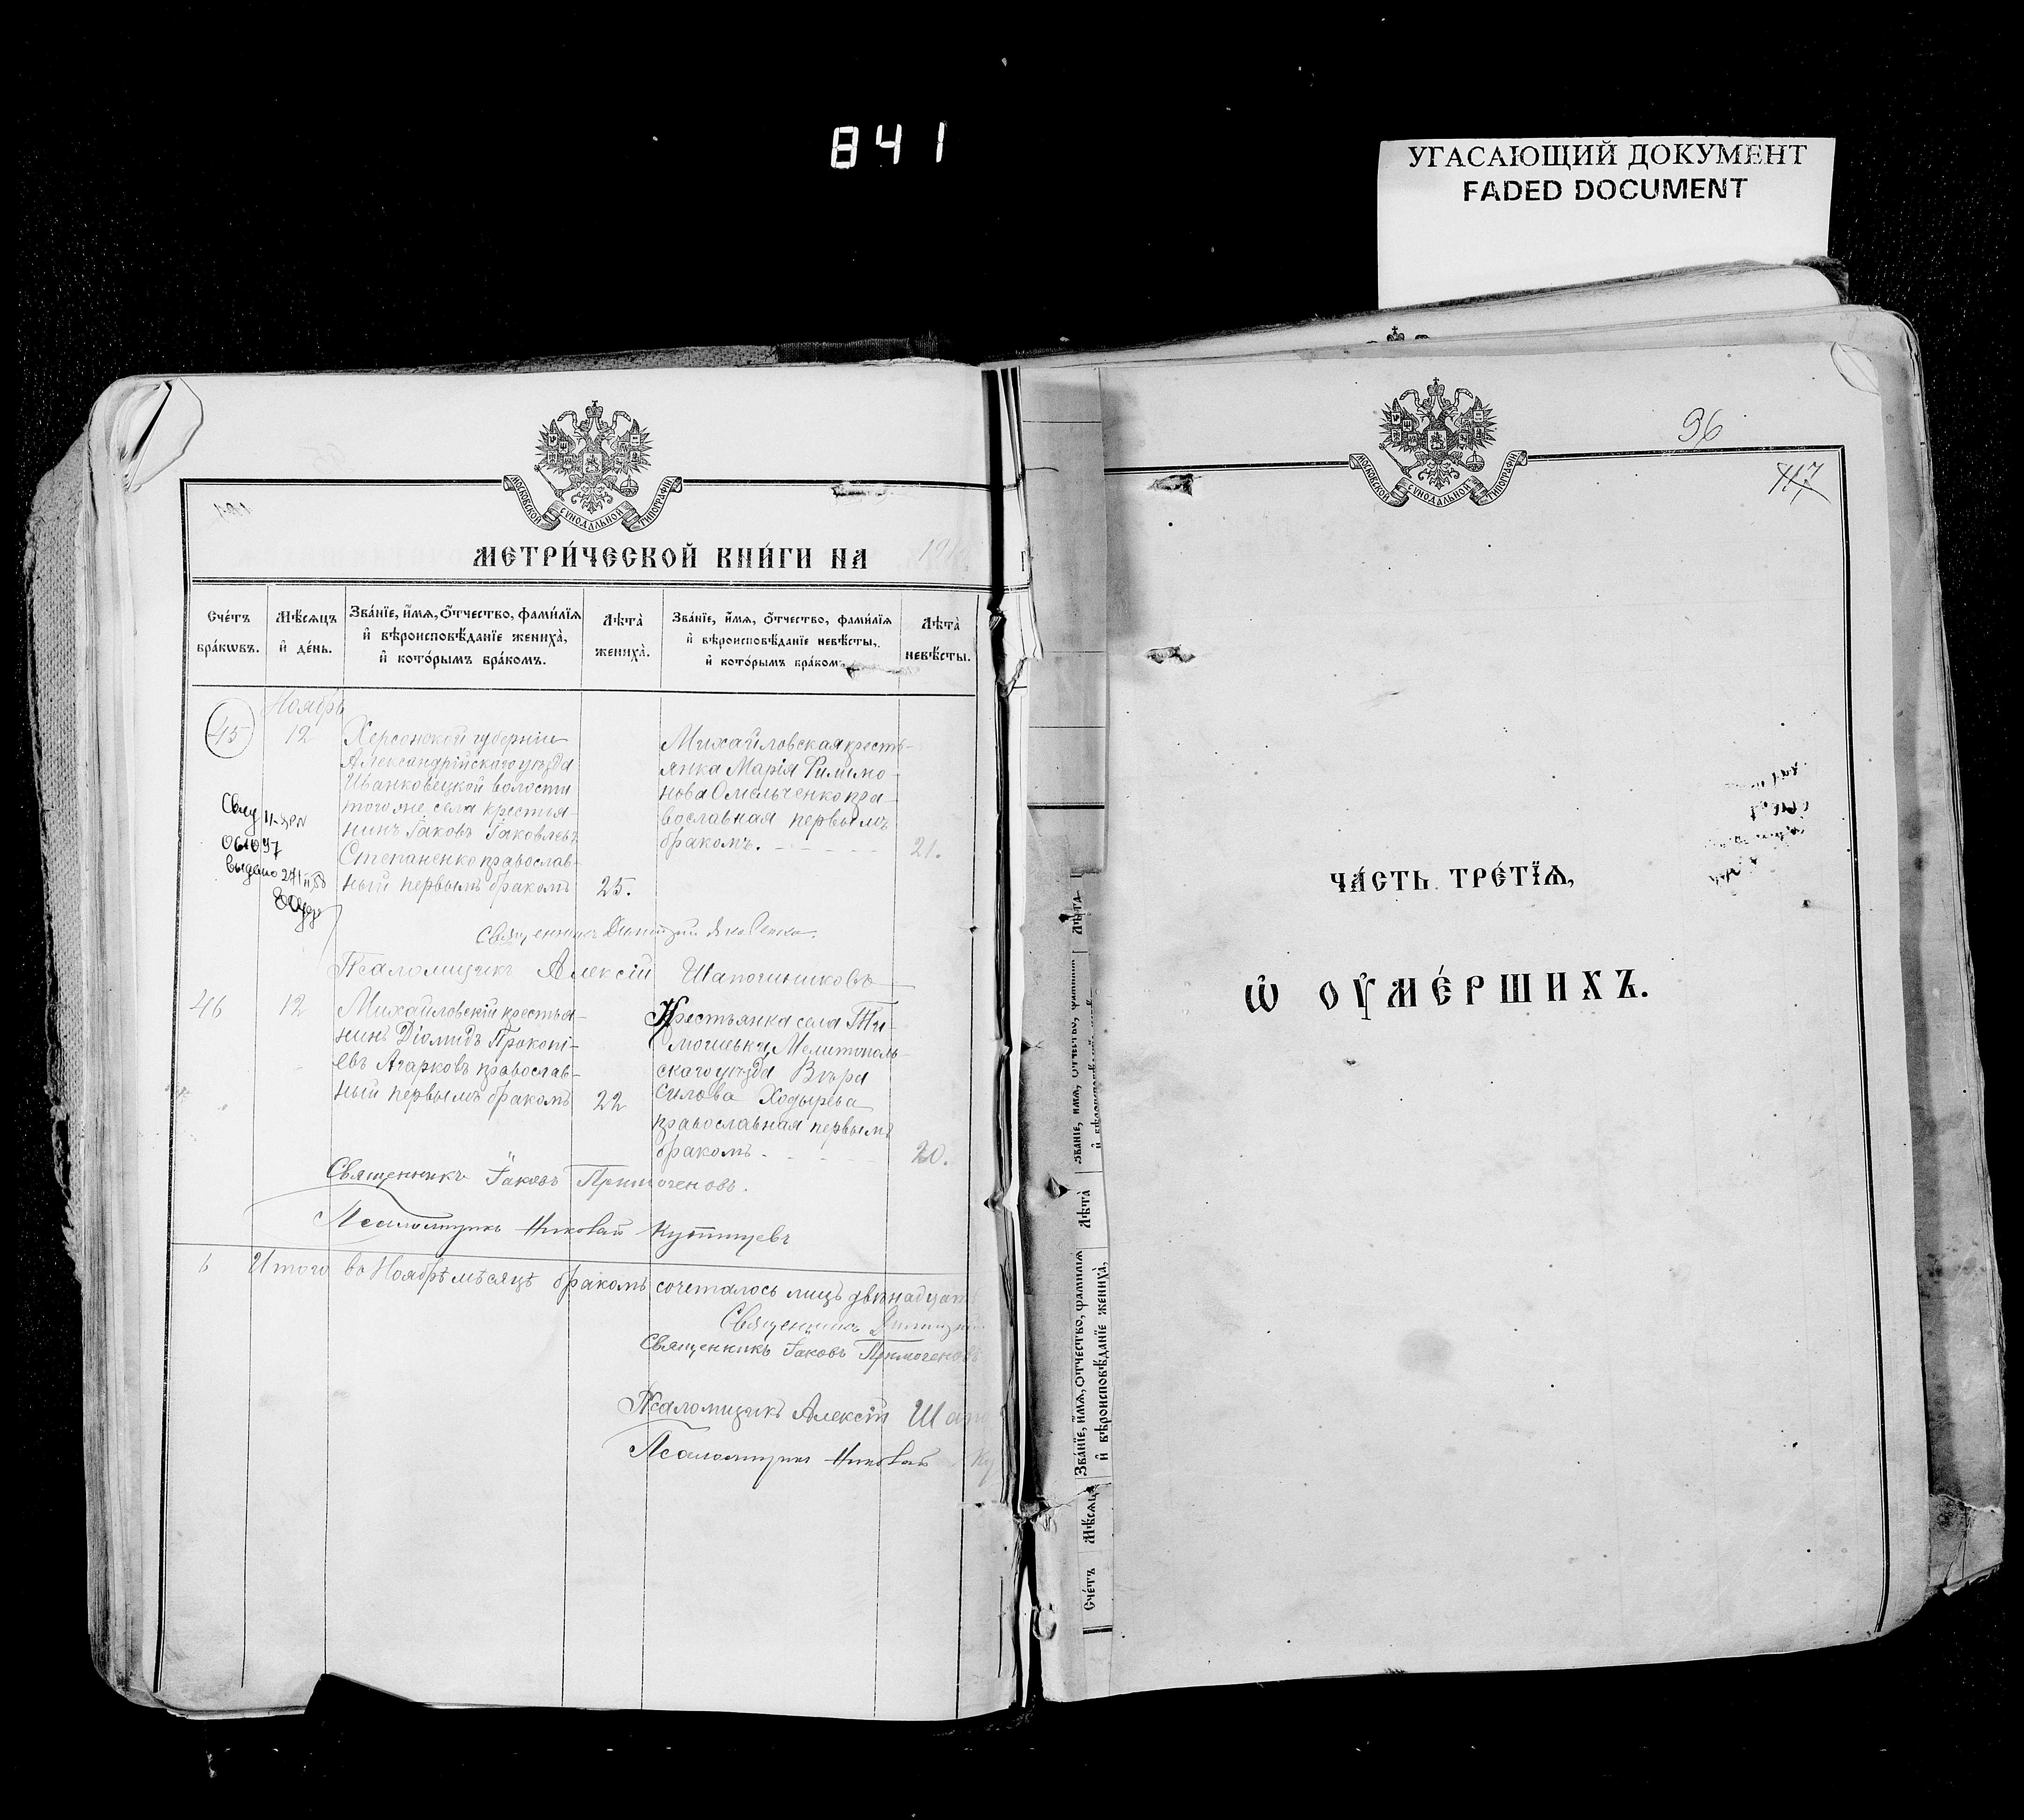 841
УГАСАЮЩИЙ ДОКУМЕНТ
FADED DOCUMENT
МОСКОВСКОЙ СѴНОДАЛЬНОЙ ТИПОГРАФІИ
МЕТРИ́ЧЕСКОЙ КНИ́ГИ НА
Сче́тъ бра́кѡвъ.
Мѣ́сяцъ и҆ де́нь.
Зва́нїе, и҆́мѧ, ѻ҆́тчество, фами́лїѧ
и҆ вѣроисповѣ́данїе женихà,
и҆ кото́рымъ бра́комъ.
Лѣ́та женихà.
Зва́нїе, и҆́мѧ, ѻ҆́тчество, фами́лїѧ
и҆ вѣроисповѣ́данїе невѣ́сты,
и҆ кото́рымъ бра́комъ
Лѣ́та невѣ́сты.
Ноябрь
45
12
Херсонской губерніи
Александрійскаго уѣзда
Иванковецкой волости
того же села крестья-
нинъ Іаковъ Іаковлевъ
Степаненко православ-
ный первымъ бракомъ
25.
Михайловская кресть-
янка Марія Филимо-
нова Омельченко пра-
вославная первымъ
бракомъ.
21.
выдано
Священникъ Димитрій
Псаломщикъ Алексій Шапошниковъ
46
12
Михайловскій крестья-
нинъ Діомидъ Прокопі-
евъ Агарковъ православ-
ный первымъ бракомъ
22
Крестьянка села Ти-
мошевки Мелитополь-
скаго уѣзда Вѣра
Силова Ходырева
православная первымъ
бракомъ
20.
Священникъ Іаковъ Примогеновъ.
Псаломщикъ Николай Купптцевъ
6 Итого въ Ноябрѣ мѣсяцѣ бракомъ сочеталось лицъ двѣнадцать
Священникъ Димитрій
Священникъ Іаковъ Примогеновъ
Псаломщикъ Алексій Шапо
Псаломщикъ Николай Ку
МОСКОВСКОЙ СѴНОДАЛЬНОЙ ТИПОГРАФІИ
96
117
ЧА́СТЬ ТРЕ́ТЇѦ,
Ѡ҆ ОУ҆МЕ́РШИХЪ.
Сче́тъ
Мѣ́сѧцъ
Зва́нїе, и҆́мѧ, ѻ҆́тчество, фами́лїѧ
и҆ вѣроисповѣ́данїе женихà,
Лѣ́та